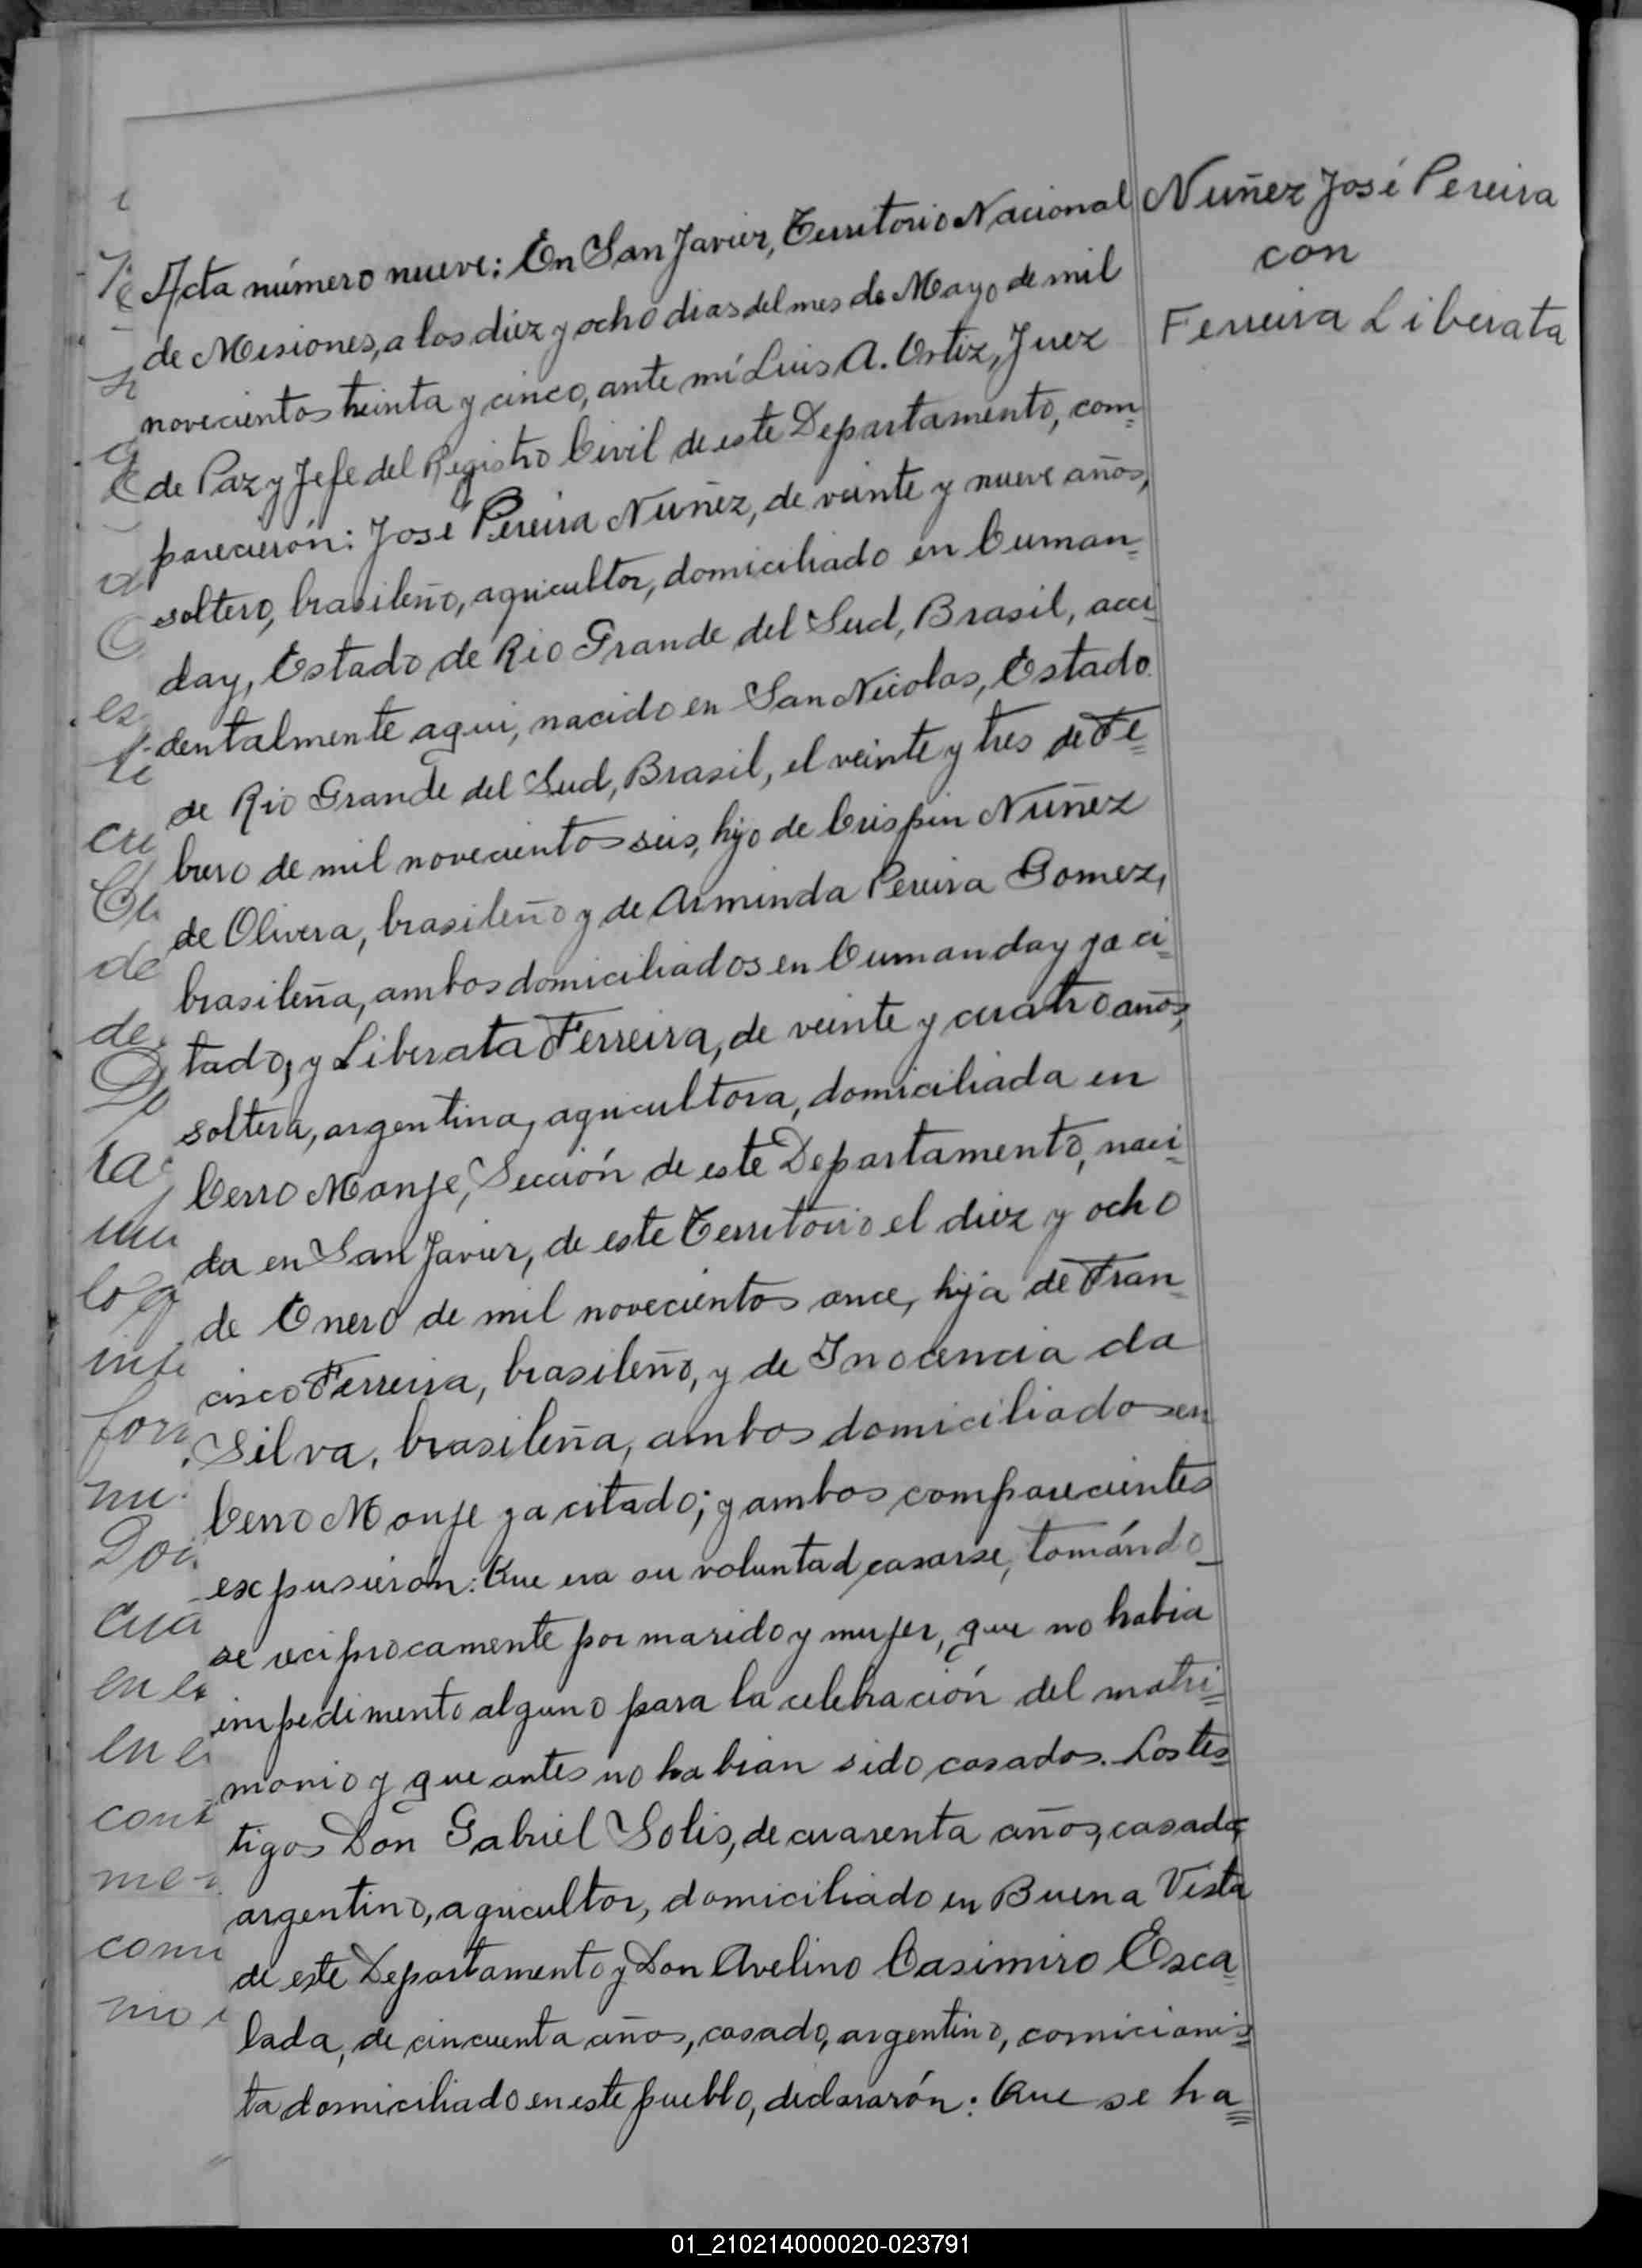 Nuñez José Pereira
con
Ferreira Liberata
Acta número nueve: En San Javier, Territorio Nacional
de Misiones, a los diez y ocho dias del mes de Mayo de mil
novecientos treinta y cinco, ante mí Luis A. Ortiz, Juez
de Paz y Jefe del Registro Civil de este Departamento, com=
parecierón: José Pereira Nuñez, de veinte y nueve años,
soltero, brasileño, agricultor, domiciliado en Cuman=
day, Estado de Rio Grande del Sud, Brasil, acci=
dentalmente aqui, nacido en San Nicolas, Estado
de Rio Grande del Sud, Brasil, el veinte y tres de Fe=
brero de mil novecientos seis, hijo de Crispin Nuñez
de Olivera, brasileño y de Arminda Pereira Gomez,
brasileña, ambos domiciliados en Cumanday ya ci=
tado, y Liberata Ferreira, de veinte y cuatro años,
soltera, argentina, agricultora, domiciliada en
Cerro Monje, Sección de este Departamento, naci=
da en San Javier, de este Territorio el diez y ocho
de Enero de mil novecientos once, hija de Fran=
cisco Ferreira, brasileño, y de Inocencia da
Silva, brasileña, ambos domiciliados en
Cerro Monje ya citado; y ambos comparecientes
expusierón: Que era su voluntad casarse, tomándo_
se reciprocamente por marido y mujer, que no habia
impedimento alguno para la celebración del matri=
monio y que antes no habian sido casados. Los tes=
tigos Don Gabriel Solis, de cuarenta años, casado,
argentino, agricultor, domiciliado en Buena Vista
de este Departamento y Don Avelino Casimiro Esca=
lada, de cincuenta años, casado, argentino, comicionis=
ta domiciliado en este pueblo, declararón: Que se ha=
01_210214000020-023791